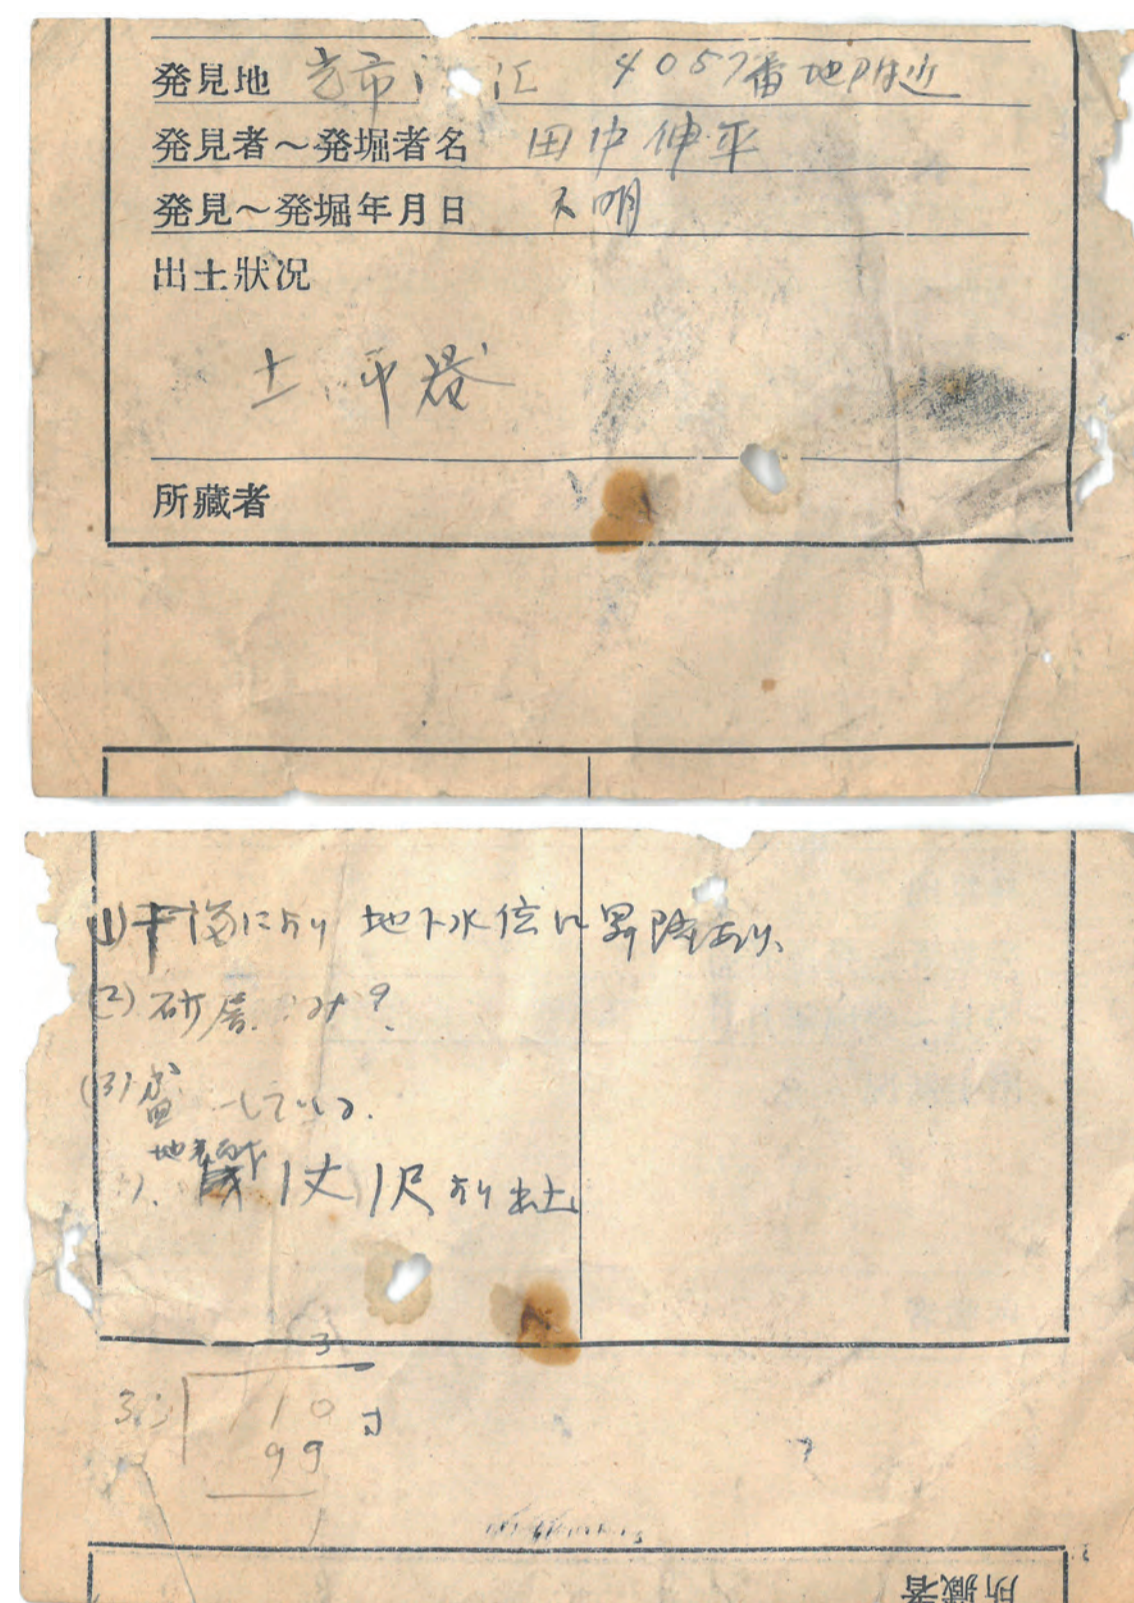 発見地 光市 江 4057番地附近
発見者～発堀者名 田中伸平
発見～発堀年月日 不明
出土狀况
土 師器
所藏者
(1) 干満により 地下水位に昇降あり、
(2) 砂層 ?
(3) している.
地表
1丈1尺より出土
3
33 110 寸
99
1
所藏者